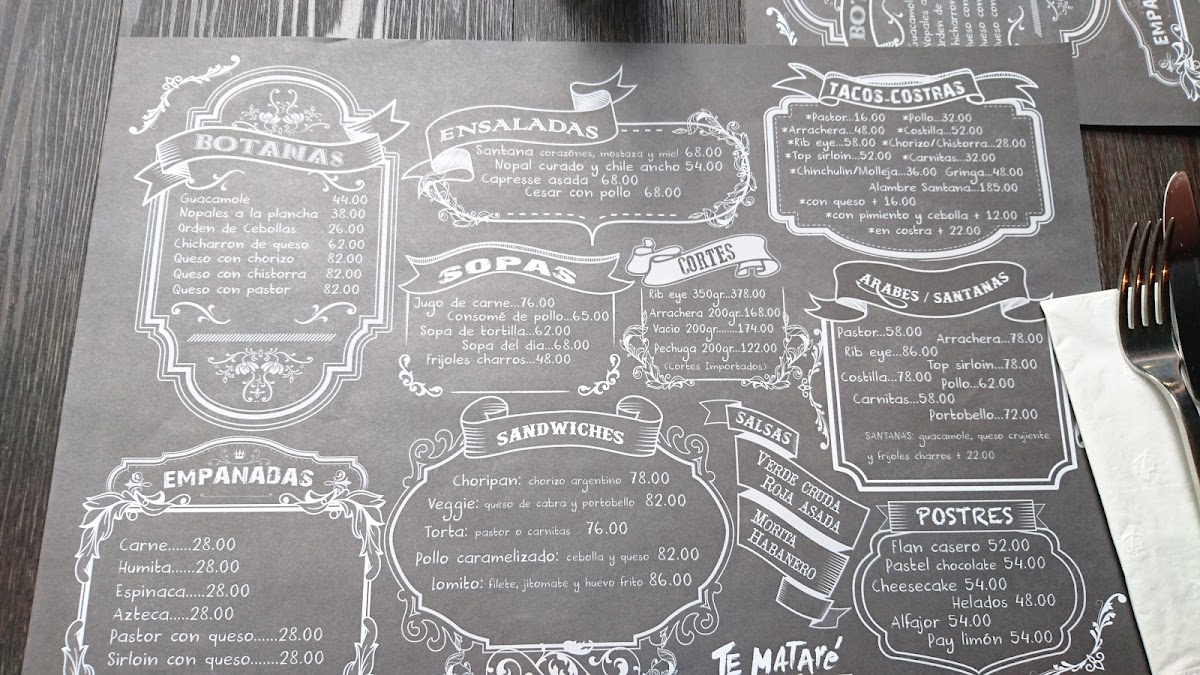 BOTANAS
Guacamole 44.00
Nopales a la plancha 38.00
Orden de Cebollas 26.00
Chicharron de queso 62.00
Queso con chorizo 82.00
Queso con chistorra 82.00
Queso con pastor 82.00
EMPANADAS
Carne......28.00
Humita......28.00
Espinaca.....28.00
Azteca.....28.00
Pastor con queso......28.00
Sirloin con queso.......28.00
ENSALADAS
Santana corazónes, mostaza y miel 68.00
Nopal curado y chile ancho 54.00
Capresse asada 68.00
Cesar con pollo 68.00
SOPAS
Jugo de carne...76.00
Consomé de pollo...65.00
Sopa de tortilla...62.00
Sopa del dia...68.00
Frijoles charros...48.00
CORTES
Rib eye 350gr...378.00
Arrachera 200gr..168.00
Vacio 200gr.......174.00
Pechuga 200gr...122.00
(Cortes Importados)
SANDWICHES
Choripan: chorizo argentino 78.00
Veggie: queso de cabra y portobello 82.00
Torta: pastor o carnitas 76.00
Pollo caramelizado: cebolla y queso 82.00
Lomito: filete, jitomate y huevo frito 86.00
SALSAS
VERDE CRUDA
ROJA ASADA
MORITA
HABANERO
TE MATARÉ
TACOS-COSTRAS
*Pastor...16.00 *Pollo...32.00
*Arrachera...48.00 *Costilla...52.00
*Rib eye...58.00 *Chorizo/Chistorra...28.00
*Top sirloin...52.00 *Carnitas...32.00
*Chinchulin/Molleja...36.00 Gringa...48.00
Alambre Santana...185.00
*con queso + 16.00
*con pimiento y cebolla + 12.00
*en costra + 22.00
ARABES / SANTANAS
Pastor...58.00
Arrachera...78.00
Rib eye...86.00
Top sirloin...78.00
Costilla...78.00
Pollo...62.00
Carnitas...58.00
Portobello...72.00
SANTANAS: guacamole, queso crujiente
y frijoles charros + 22.00
POSTRES
Flan casero 52.00
Pastel chocolate 54.00
Cheesecake 54.00
Helados 48.00
Alfajor 54.00
Pay limón 54.00
BOT
Guacamole
Nopales a la
Orden de
Chicharron
Queso con
Queso con
EMPAN